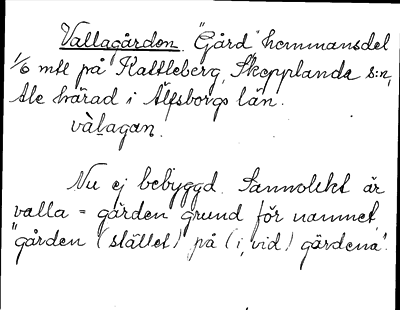 Vallagården. "Gård", hemmansdel
1/6 mtl på Kattleberg, Skepplanda s:n,
Ale härad i Älfsborgs län.
vàḻagan.
Nu ej bebyggd. Sannolikt är
valla = gärden grund för namnet,
"gården (stället) på (i, vid) gärdena".